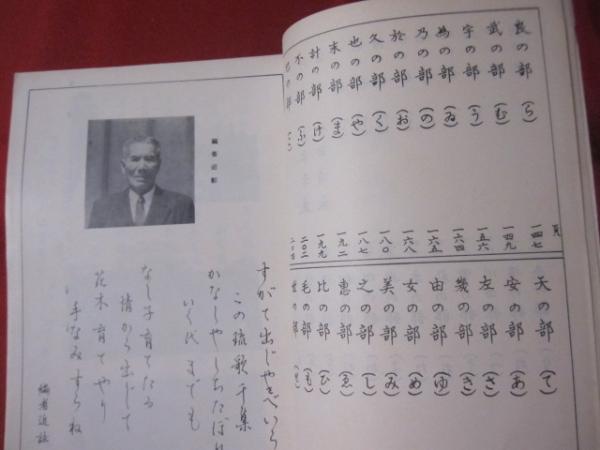 頁
良の部（ら）一四七
武の部（む）一四九
宇の部（う）一五六
為の部（ゐ）一六四
乃の部（の）一六五
於の部（お）一六八
久の部（く）一八〇
也の部（や）一八七
末の部（ま）一九二
計の部（け）一九九
不の部（ふ）二〇二
の部
天の部（て）
安の部（あ）
左の部（さ）
幾の部（き）
由の部（ゆ）
女の部（め）
美の部（み）
之の部（し）
恵の部（ゑ）
比の部（ひ）
毛の部（も）
の部
編者近影
すがて出じやさべいら
この琉歌千集
かなしやしちたぼり
いく代までも
なし子育てたる
情から出じて
花木育てやり
手なみすらね
編者近詠